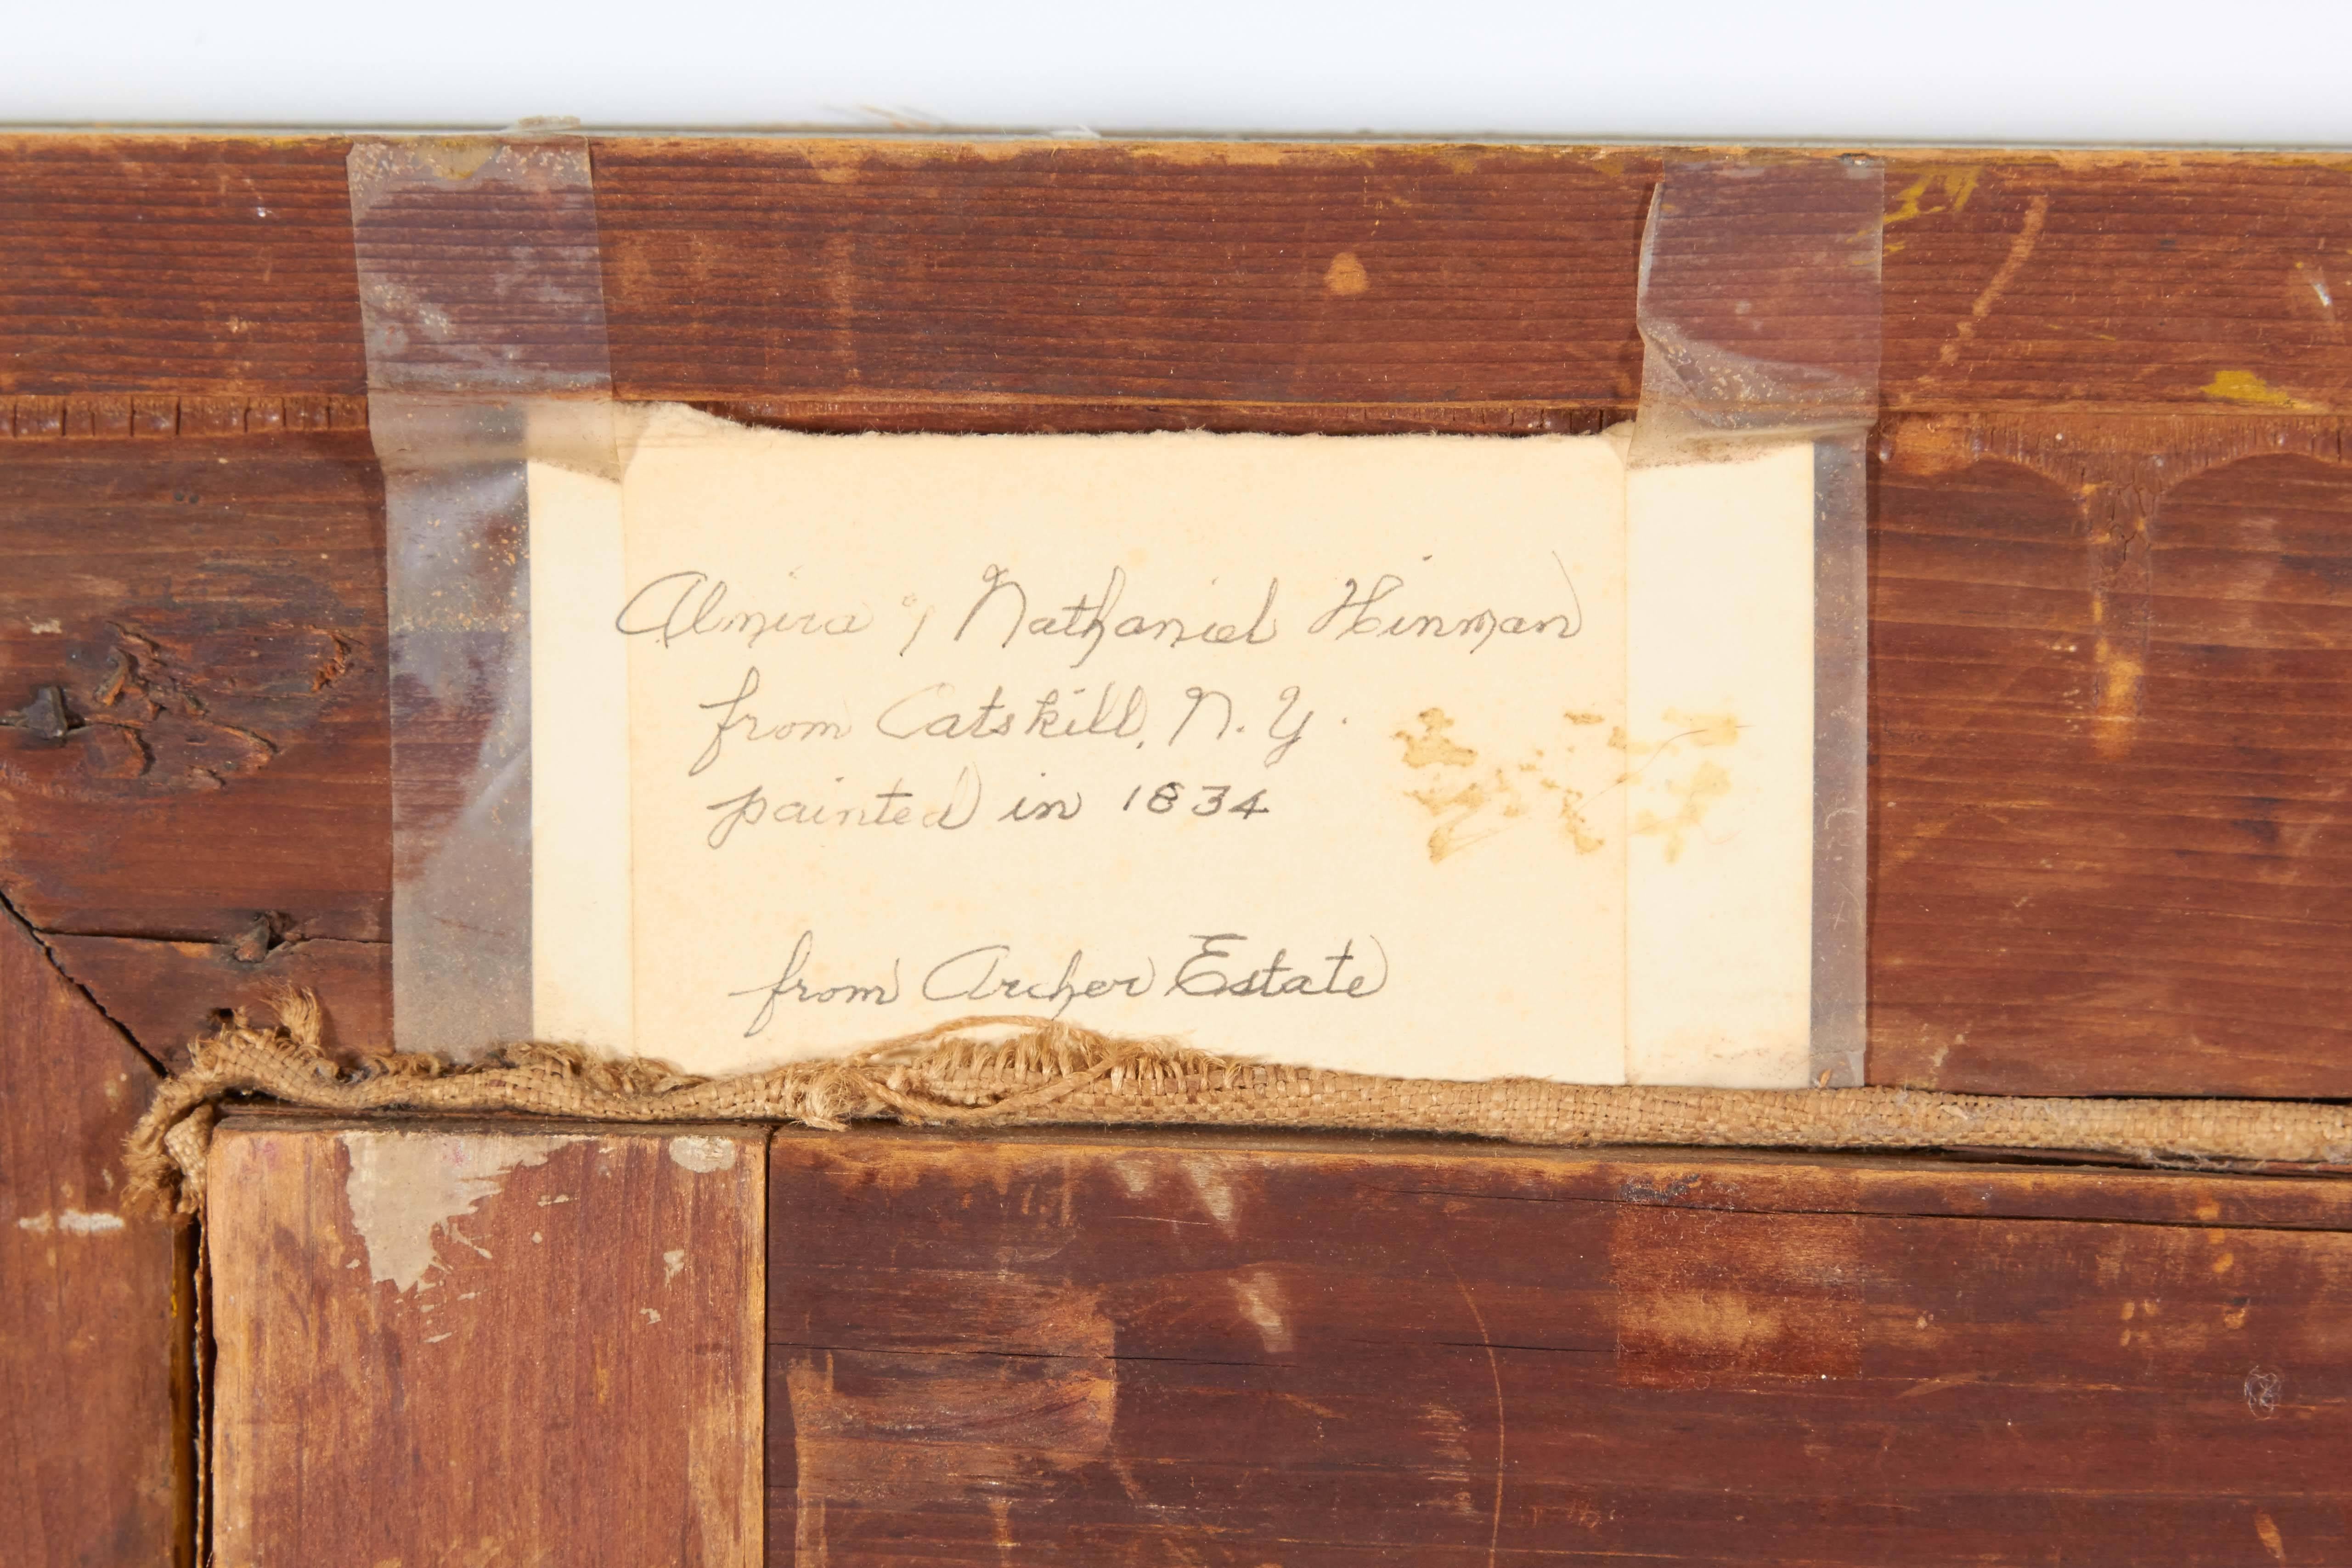 Almira & Nathaniel Hinman
from Catskill, N.Y.
painted in 1834
from Archer Estate